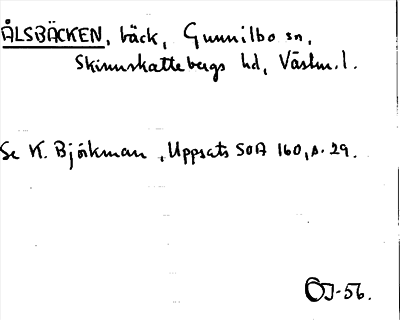 ÅLSBÄCKEN, bäck, Gunnilbo sn,
Skinnskattebergs hd, Västm. l.
Se K. Björkman, Uppsats SOA 160, s. 29.
ÖJ-56.